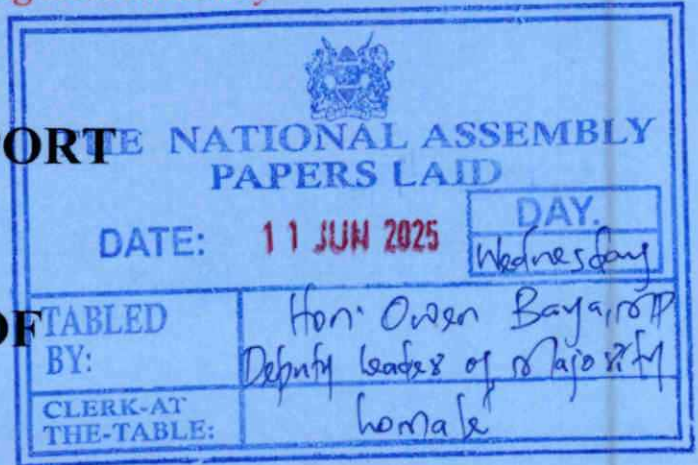 ORT
THE NATIONAL ASSEMBLY
PAPERS LAID
DAY.
DATE: 11 JUN 2025
Wednesday
OF
TABLED BY:
Hon. Owen Baya, MP
Deputy Leader of Majority
CLERK-AT THE-TABLE: